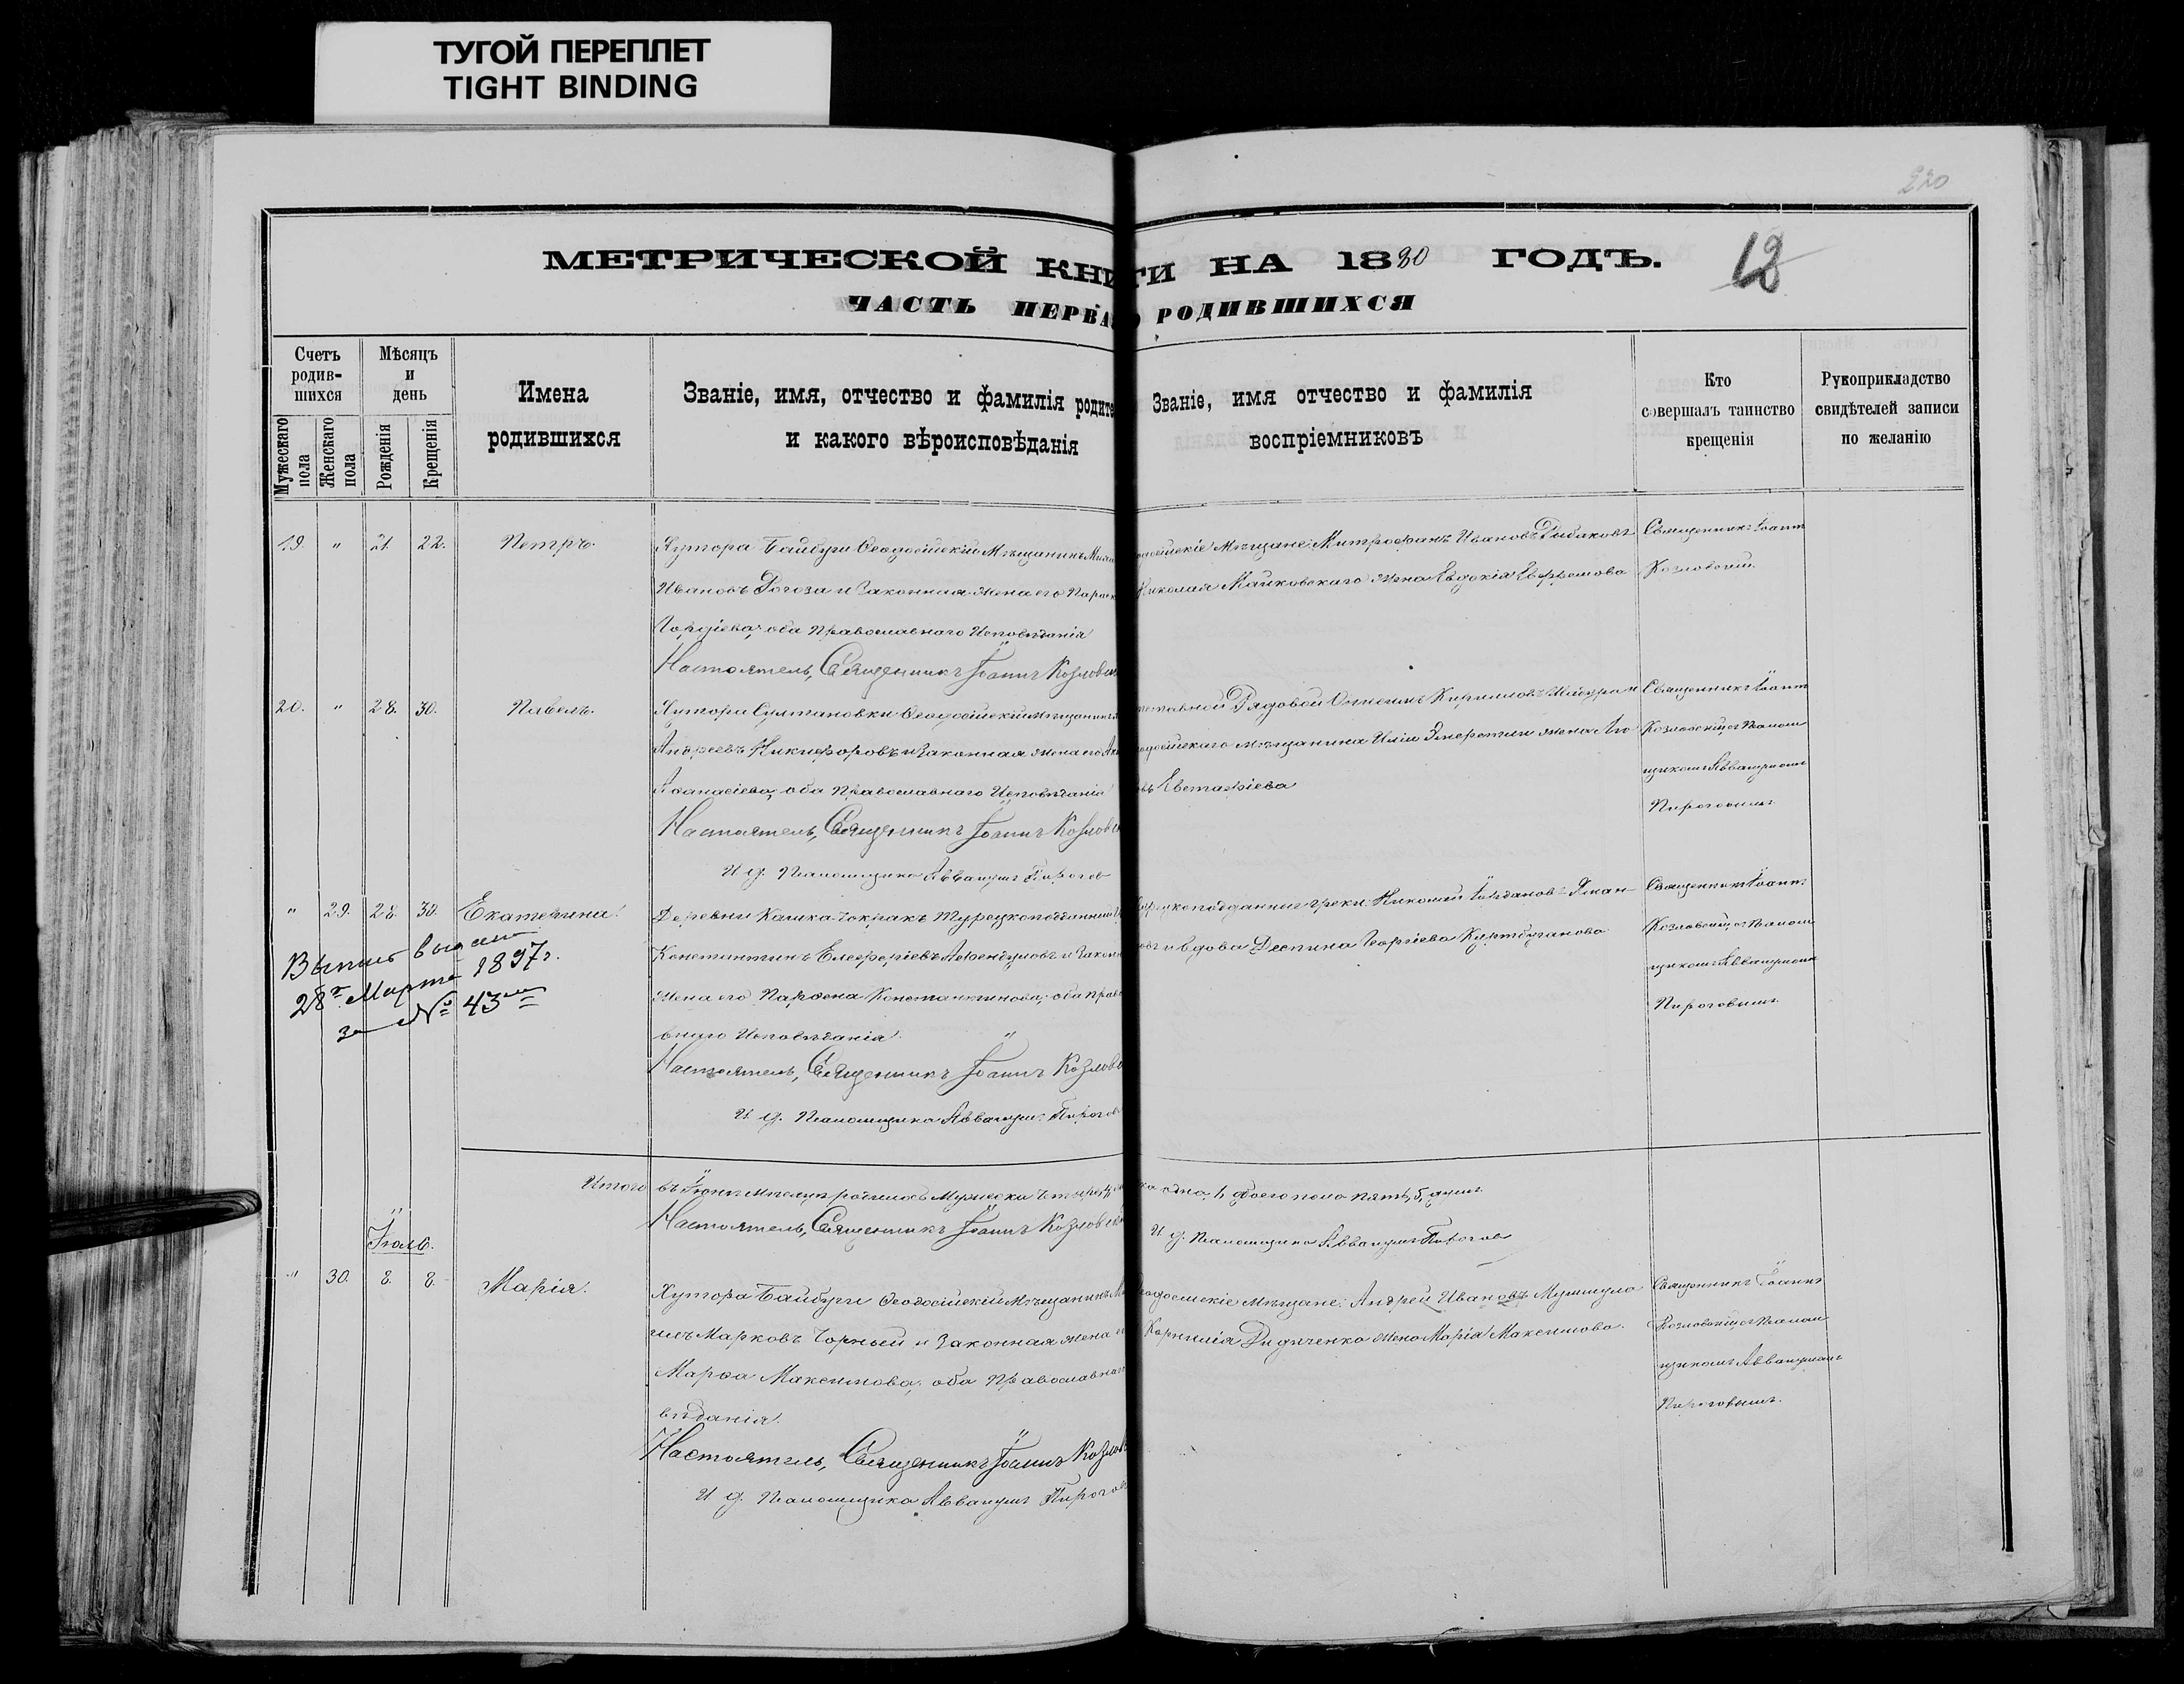 ТУГОЙ ПЕРЕПЛЕТ
TIGHT BINDING
220
МЕТРИЧЕСКОЙ КНИГИ НА 1880 ГОДЪ.
12
ЧАСТЬ ПЕРВА О РОДИВШИХСЯ
Счетъ родив-шихся
Мужескаго пола
Женскаго пола
Мѣсяцъ и день
Рожденія
Крещенія
Имена родившихся
Званіе, имя, отчество и фамилія родите
и какого вѣроисповѣданія
Званіе, имя отчество и фамилія
воспріемниковъ
Кто
совершалъ таинство
крещенія
Рукоприкладство
свидѣтелей записи
по желанію
19. " 21. 22. Петръ.
Хутора Байбуги Ѳеодосійскій Мѣщанинъ Миха
Ивановъ Рогоза и Законная жена его Параск
Гордіева; оба Православнаго Исповѣданія
Настоятель, Священникъ Іоаннъ Козловск
одосійскіе Мѣщане: Митрофанъ Ивановъ Рыбаковъ
Николая Майковскаго жена Евдокія Ефремова
Священникъ Іоаннъ
Козловскій.
20. " 28. 30. Павелъ.
Хутора Султановки Ѳеодосійскій мѣщанинъ
Андреевъ Никифоровъ и Законная жена его
Аѳанасіева, оба Православнаго Исповѣданія
Настоятель, Священникъ Іоаннъ Козловск
И. д. Псаломщика Авванумъ Пироговъ
тставной Рядовой Онисимъ Кириловъ
одосійскаго мѣщанина Иліи жена
вь Евстафіева
Священникъ Іоаннъ
Козловскій съ Псалом
щикомъ Аввакумомъ
Пироговымъ.
" 29. 28. 30. Екатерина.
Выпись выдана
28го Марта 1897 г.
за № 43мъ
Деревни Кашка-Чокракъ Турецкоподданный
Константинъ Елефѳеріевъ и Законн
жена его Парѳена Константинова; оба право
внаго Исповѣданія.
Настоятель, Священникъ Іоаннъ Козловс
И. д. Псаломщика Аввакумъ Пирогов
урецкоподданные греки: Николай
овъ и вдова Деспина Георгіева
Священникъ Іоаннъ
Козловскій, съ Псалом
щикомъ Аввакумомъ
Пироговымъ.
Итого въ Іюнѣ мѣсяцѣ родилось Мужеска четыре, 4,
ка одна, 1, обоего пола пять, 5, душъ.
Настоятель, Священникъ Іоаннъ Козловскі
И. д. Псаломщика Аввакумъ Пирогов
Іюль.
" 30. 8. 8. Марія.
Хутора Байбуги Ѳеодосійскій Мѣщанинъ
илъ Марковъ Чорный и Законная жена е
Марѳа Максимова; оба Православнаго
вѣданія.
Настоятель, Священникъ Іоаннъ Козлов
И. д. Псаломщика Аввакумъ Пирогов
еодосійскіе мѣщане: Андрей Ивановъ
Корнилія Дидиченка жена Марія Максимова.
Священникъ Іоаннъ
Козловскій съ Псалом
щикомъ Аввакумомъ
Пироговымъ.